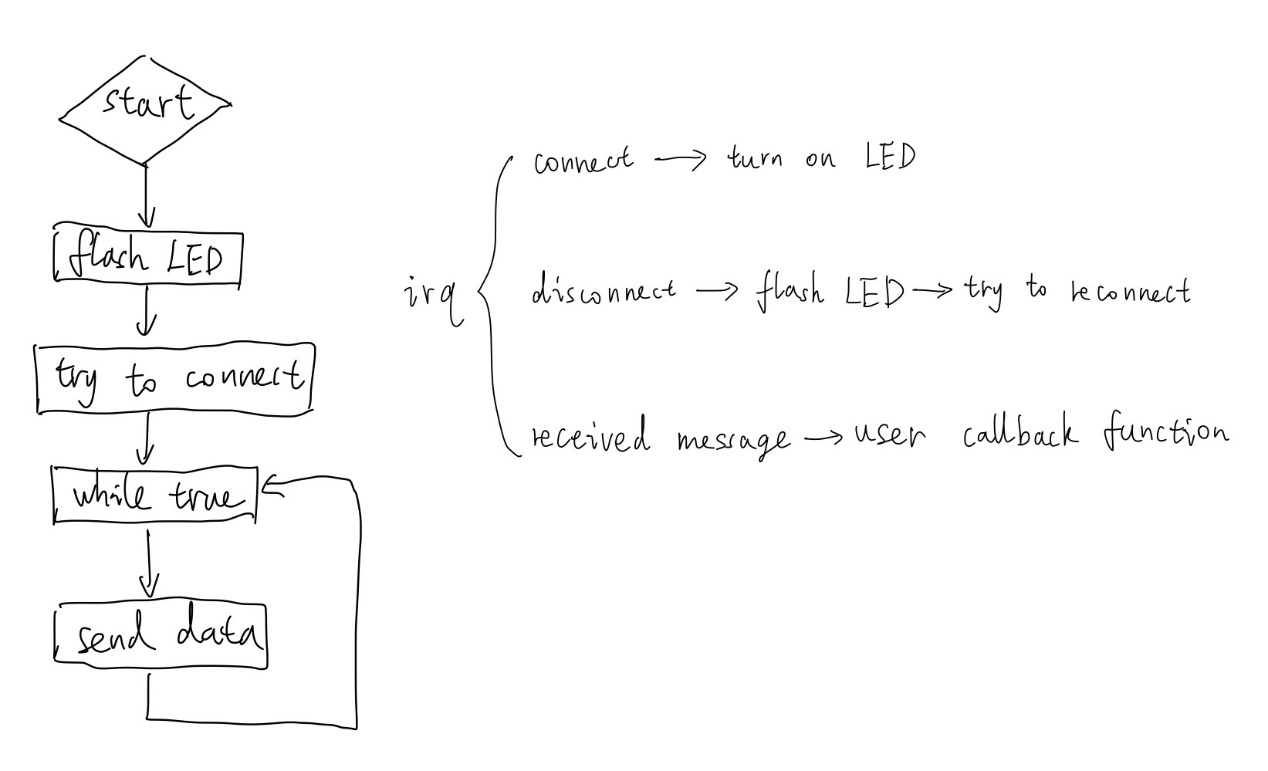 start
flash LED
try to connect
while true
send data
irq
connect → turn on LED
disconnect → flash LED → try to reconnect
received message → user callback function